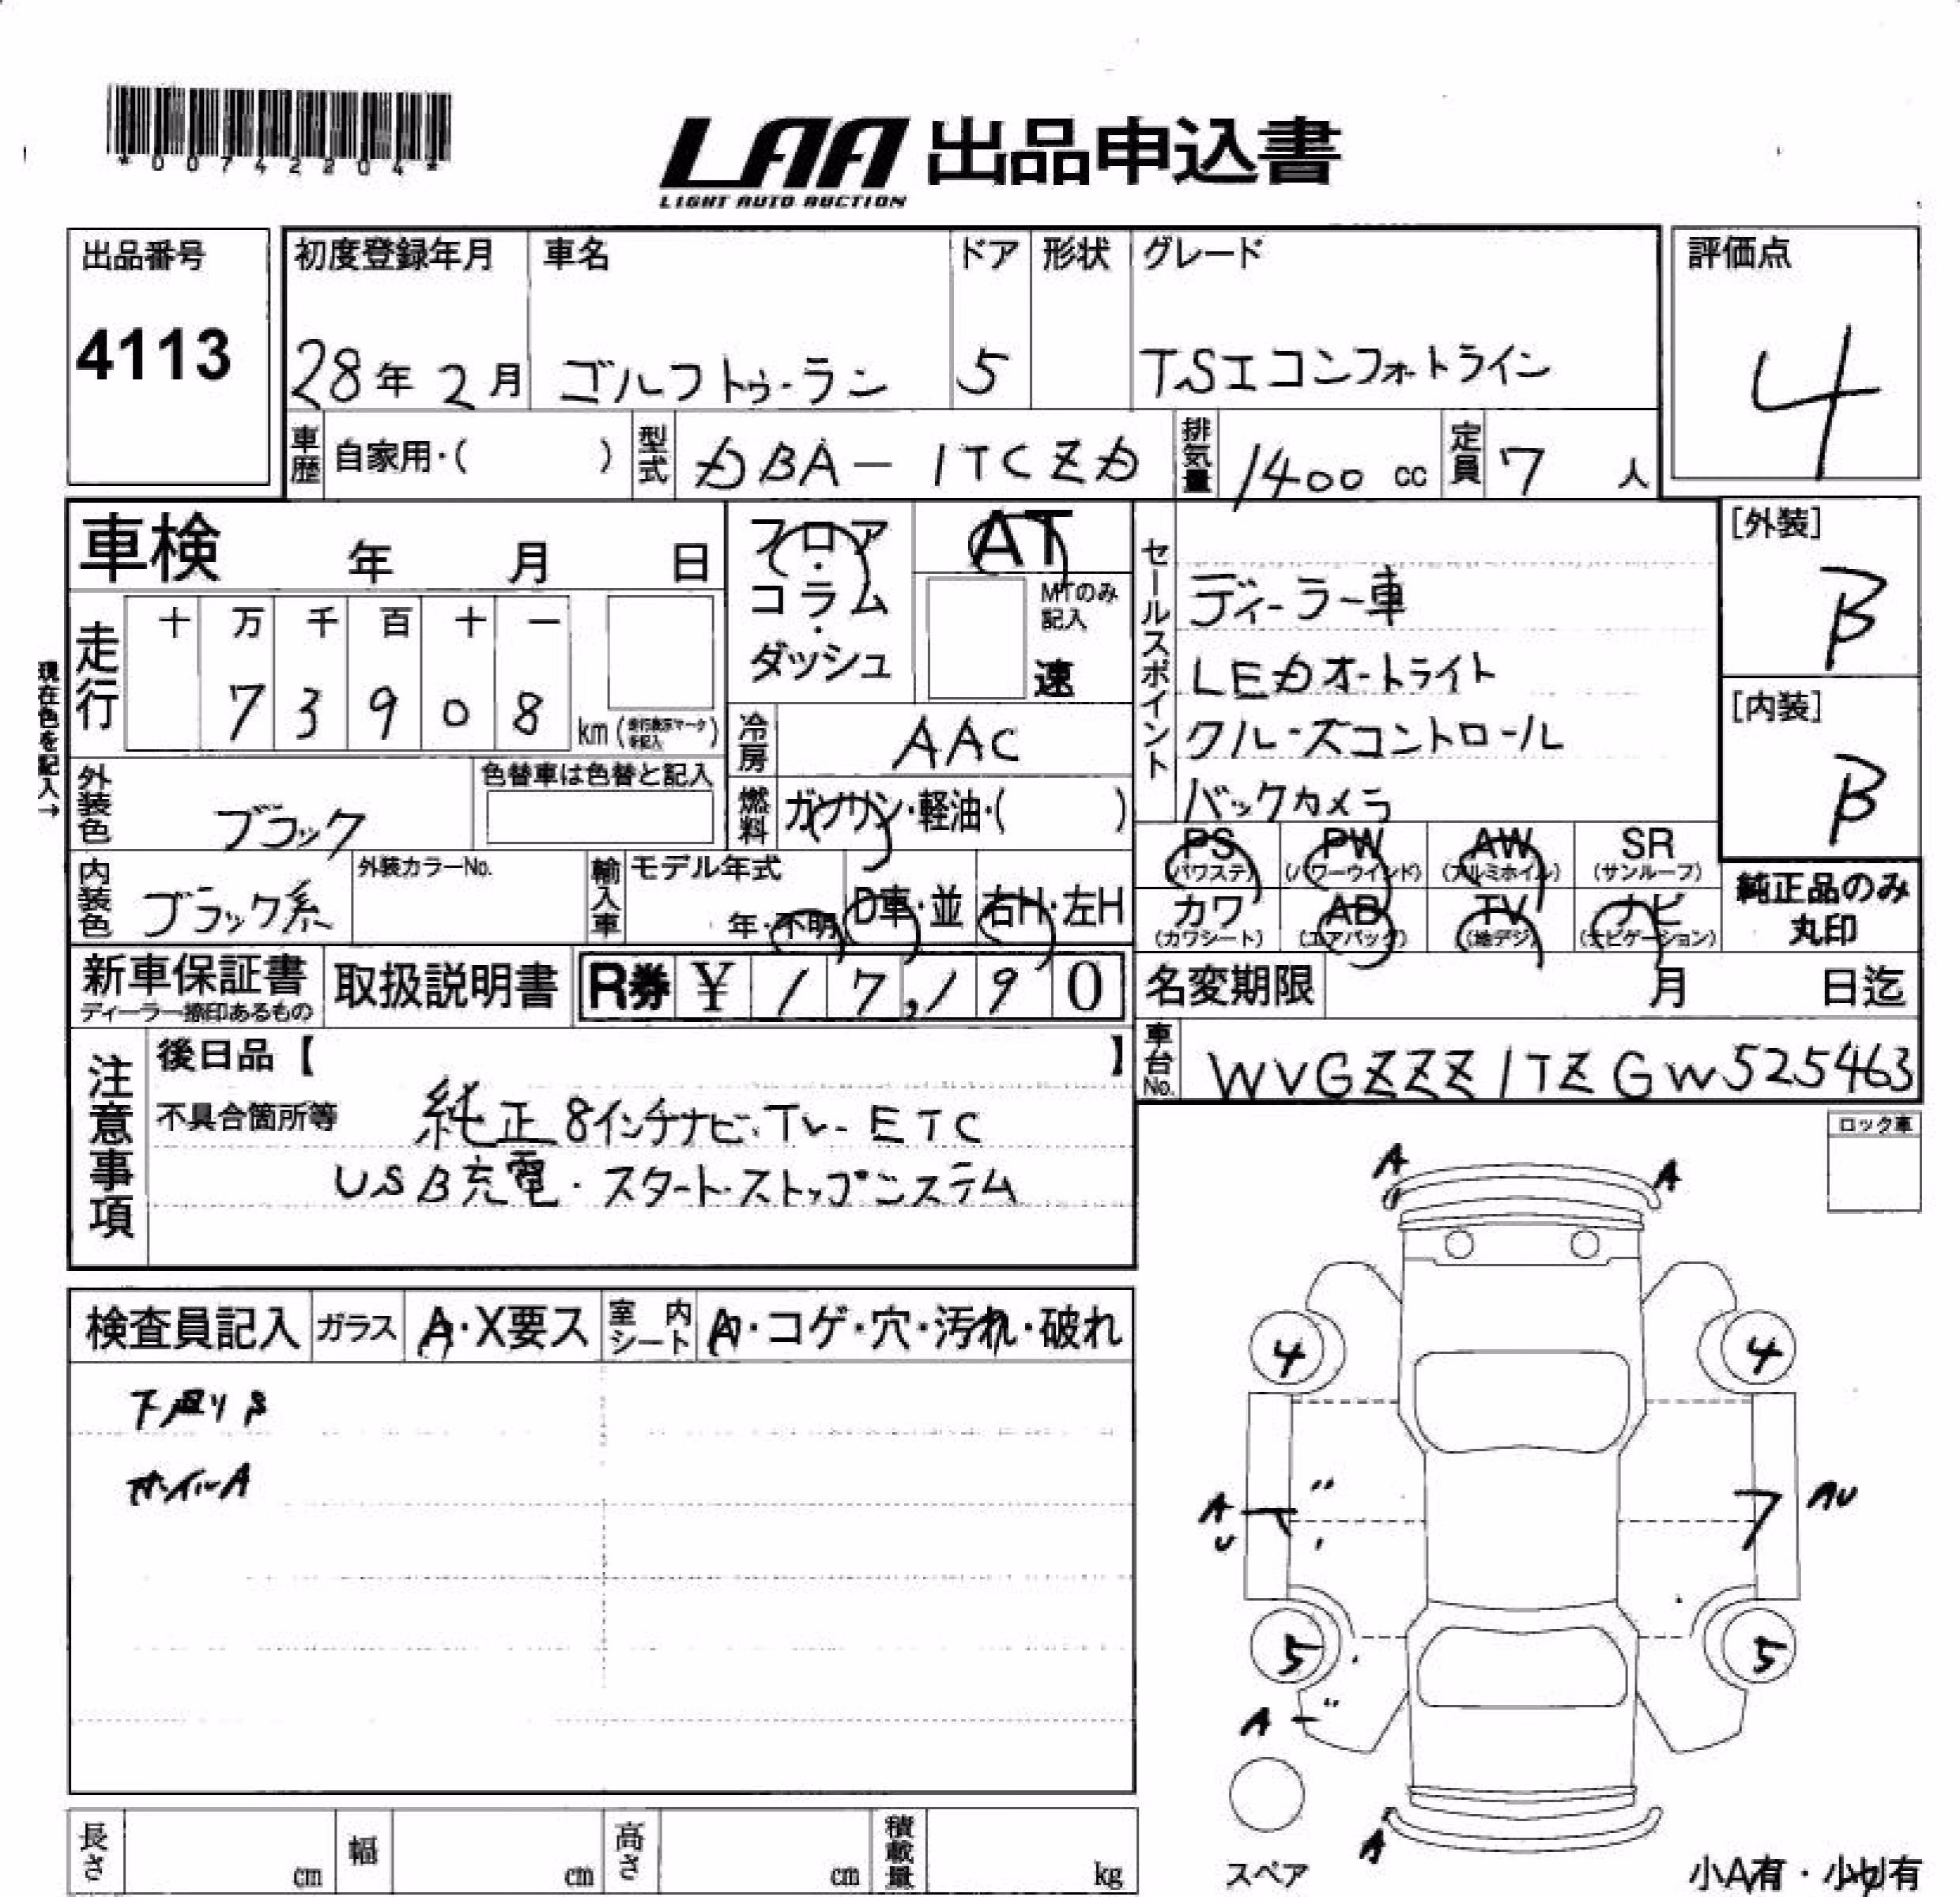 *00742204*
LAA 出品申込書
LIGHT AUTO AUCTION
出品番号
4113
初度登録年月 車名 ドア 形状 グレード
28年2月 ゴルフトゥーラン 5 TSIコンフォートライン
評価点
4
車歴 自家用・( ) 型式 DBA-1TCZD 排気量 1400 cc 定員 7 人
車検 年 月 日
フロア・コラム・ダッシュ
AT
MTのみ記入
速
セールスポイント
ディーラー車
LEDオートライト
クルーズコントロール
バックカメラ
[外装]
B
[内装]
B
現在色を記入→
走行 十 万 千 百 十 一
7 3 9 0 8 km
冷房 AAC
外装色 ブラック
色替車は色替と記入
燃料 ガソリン・軽油・( )
内装色 ブラック系
外装カラーNo.
輸入車 モデル年式
年・不明 D車・並 右H・左H
PS PW AW SR
(パワステ) (パワーウインド) (アルミホイル) (サンルーフ)
カワ AB TV ナビ
(カワシート) (エアバッグ) (地デジ) (ナビゲーション)
純正品のみ
丸印
新車保証書 取扱説明書 R券 ¥ 17,190
ディーラー捺印あるもの
名変期限 月 日迄
車台No. WVGZZZ1TZGW525463
注意事項
後日品【 】
不具合箇所等 純正8インチナビ・TV・ETC
USB充電・スタート・ストップシステム
ロック車
検査員記入 ガラス A・X要ス 室内シート A・コゲ・穴・汚れ・破れ
下廻りS
ホイルA
A A
4 4
A U AU
5 5
A
A
スペア
小A有・小U有
長さ cm 幅 cm 高さ cm 積載量 kg